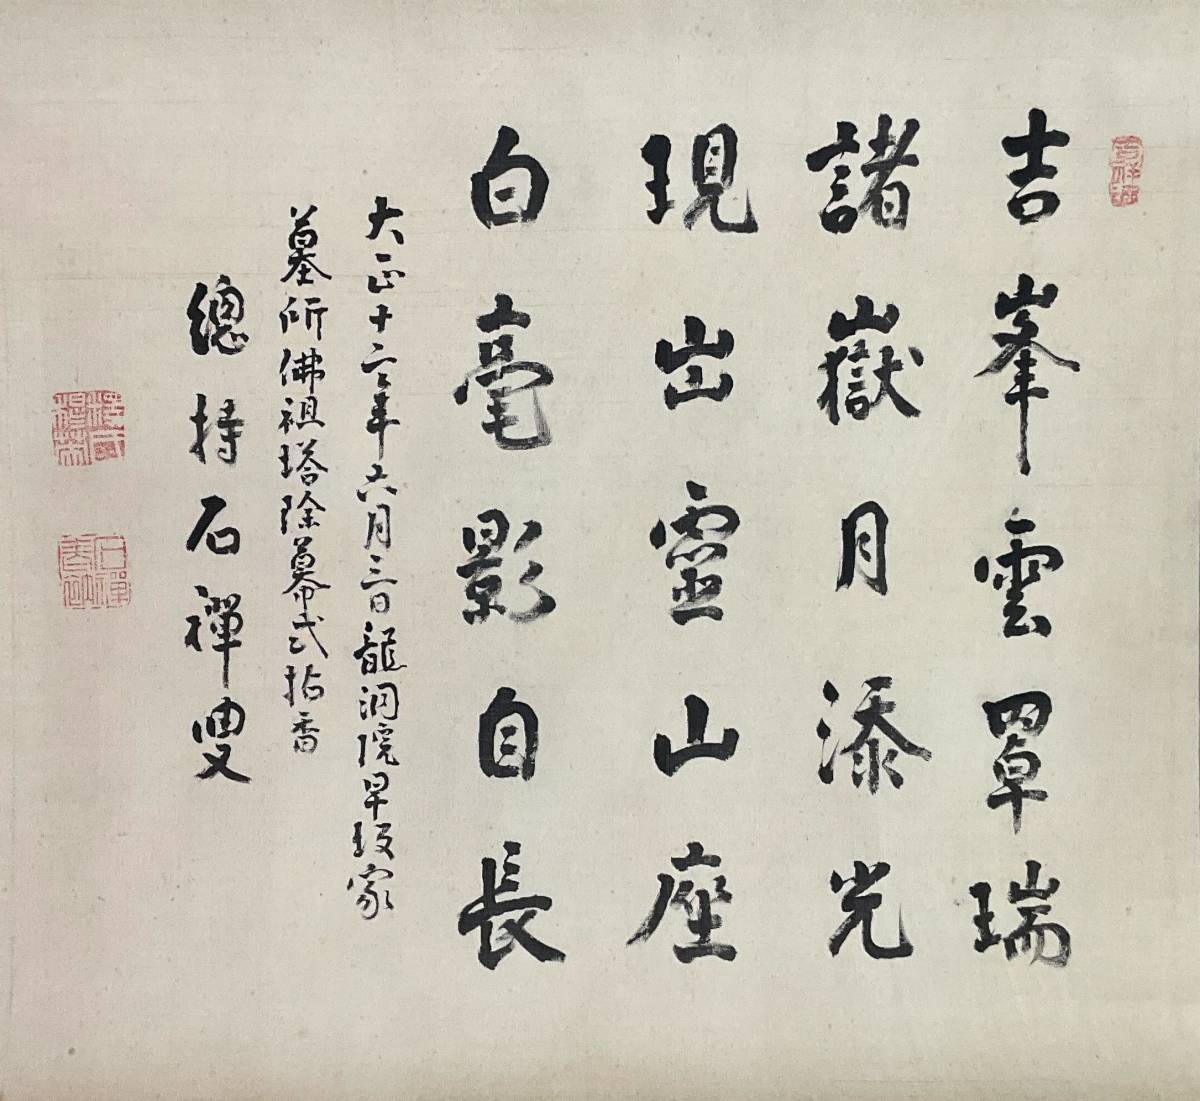 吉峯雲罩瑞
諸嶽月添光
現出靈山座
白毫影自長
大正十二年六月三日龍洞院早坂家
墓所佛祖塔除幕式拈香
總持石禪叟